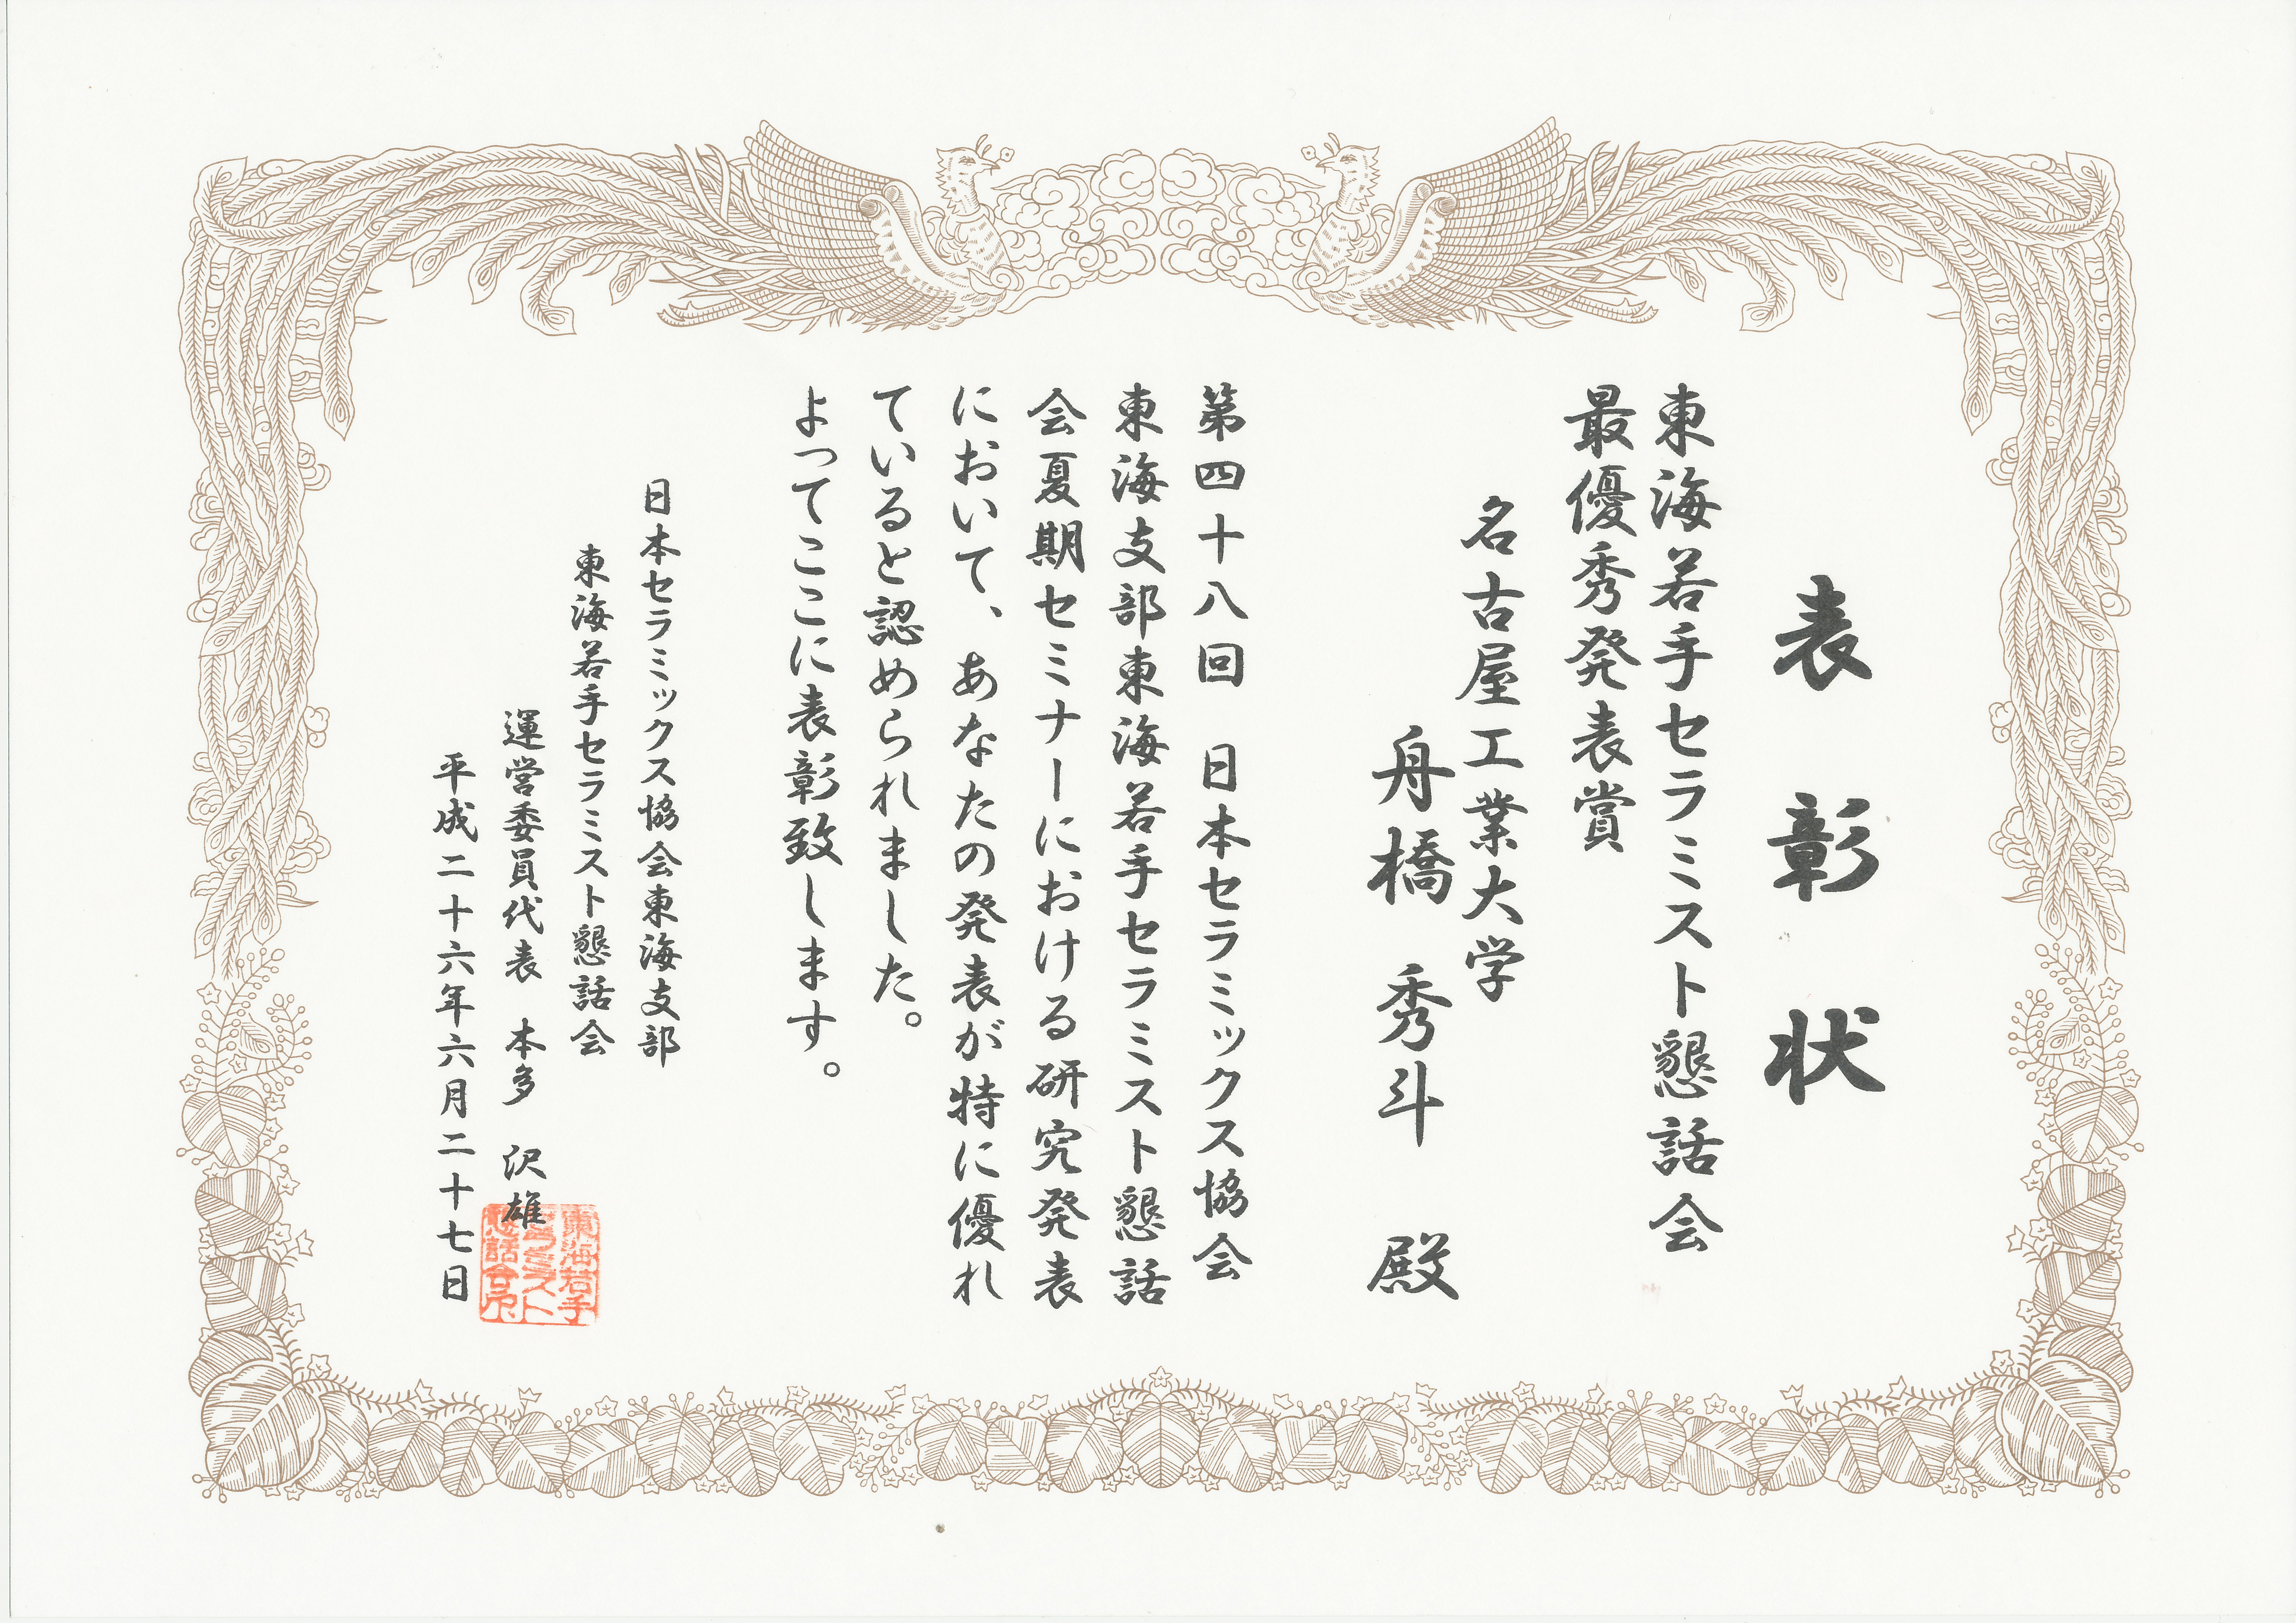 表彰状
東海若手セラミスト懇話会
最優秀発表賞
名古屋工業大学
舟橋 秀斗 殿
第四十八回 日本セラミックス協会
東海支部東海若手セラミスト懇話
会夏期セミナーにおける研究発表
において、あなたの発表が特に優れ
ていると認められました。
よってここに表彰致します。
日本セラミックス協会東海支部
東海若手セラミスト懇話会
運営委員代表 本多 沢雄
平成二十六年六月二十七日
東海若手
セラミスト
懇話会印